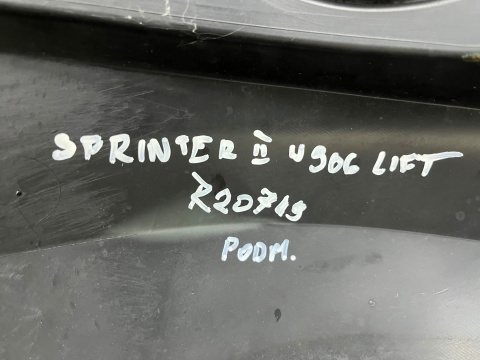 SPRINTER II W906 LIFT
R20719
PODM.